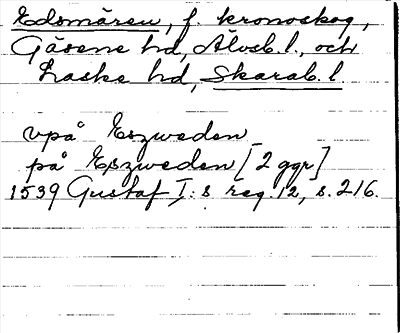 Edsmären, f. kronoskog,
Gäsene hd, Älvsb. l., och
Laske hd, Skarab. l.
vpå Eszweden
på Eszweden [2 ggr]
1539 Gustaf I:s reg. 12, s. 216.